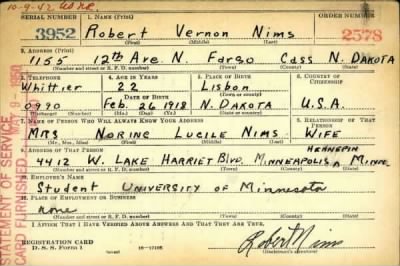 10-9-42 WSNR
SERIAL NUMBER 1. NAME (Print) ORDER NUMBER
3952 Robert Vernon Nims 2578
(First) (Middle) (Last)
2. ADDRESS (Print)
1155 12th Ave. N. Fargo Cass N. DAKOTA
(Number and street or R. F. D. number) (Town) (County) (State)
3. TELEPHONE 4. AGE IN YEARS 5. PLACE OF BIRTH 6. COUNTRY OF CITIZENSHIP
Whittier 22 Lisbon
(Exchange) DATE OF BIRTH (Town or county)
0990 Feb. 26 1918 N. DAKOTA U.S.A.
(Number) (Mo.) (Day) (Yr.) (State or country)
7. NAME OF PERSON WHO WILL ALWAYS KNOW YOUR ADDRESS 8. RELATIONSHIP OF THAT PERSON
MRS NORINE LUCILE NIMS WIFE
(Mr., Mrs., Miss) (First) (Middle) (Last)
9. ADDRESS OF THAT PERSON HENNEPIN
4412 W. LAKE HARRIET BLVD. MINNEAPOLIS MINN.
(Number and street or R. F. D. number) (Town) (County) (State)
10. EMPLOYER'S NAME
Student UNIVERSITY OF MINNESOTA
11. PLACE OF EMPLOYMENT OR BUSINESS
none
(Number and street or R. F. D. number) (Town) (County) (State)
I AFFIRM THAT I HAVE VERIFIED ABOVE ANSWERS AND THAT THEY ARE TRUE.
REGISTRATION CARD
D. S. S. Form 1 16-17105 Robert Nims
(Registrant's signature)
STATEMENT OF SERVICE
CARD FURNISHED